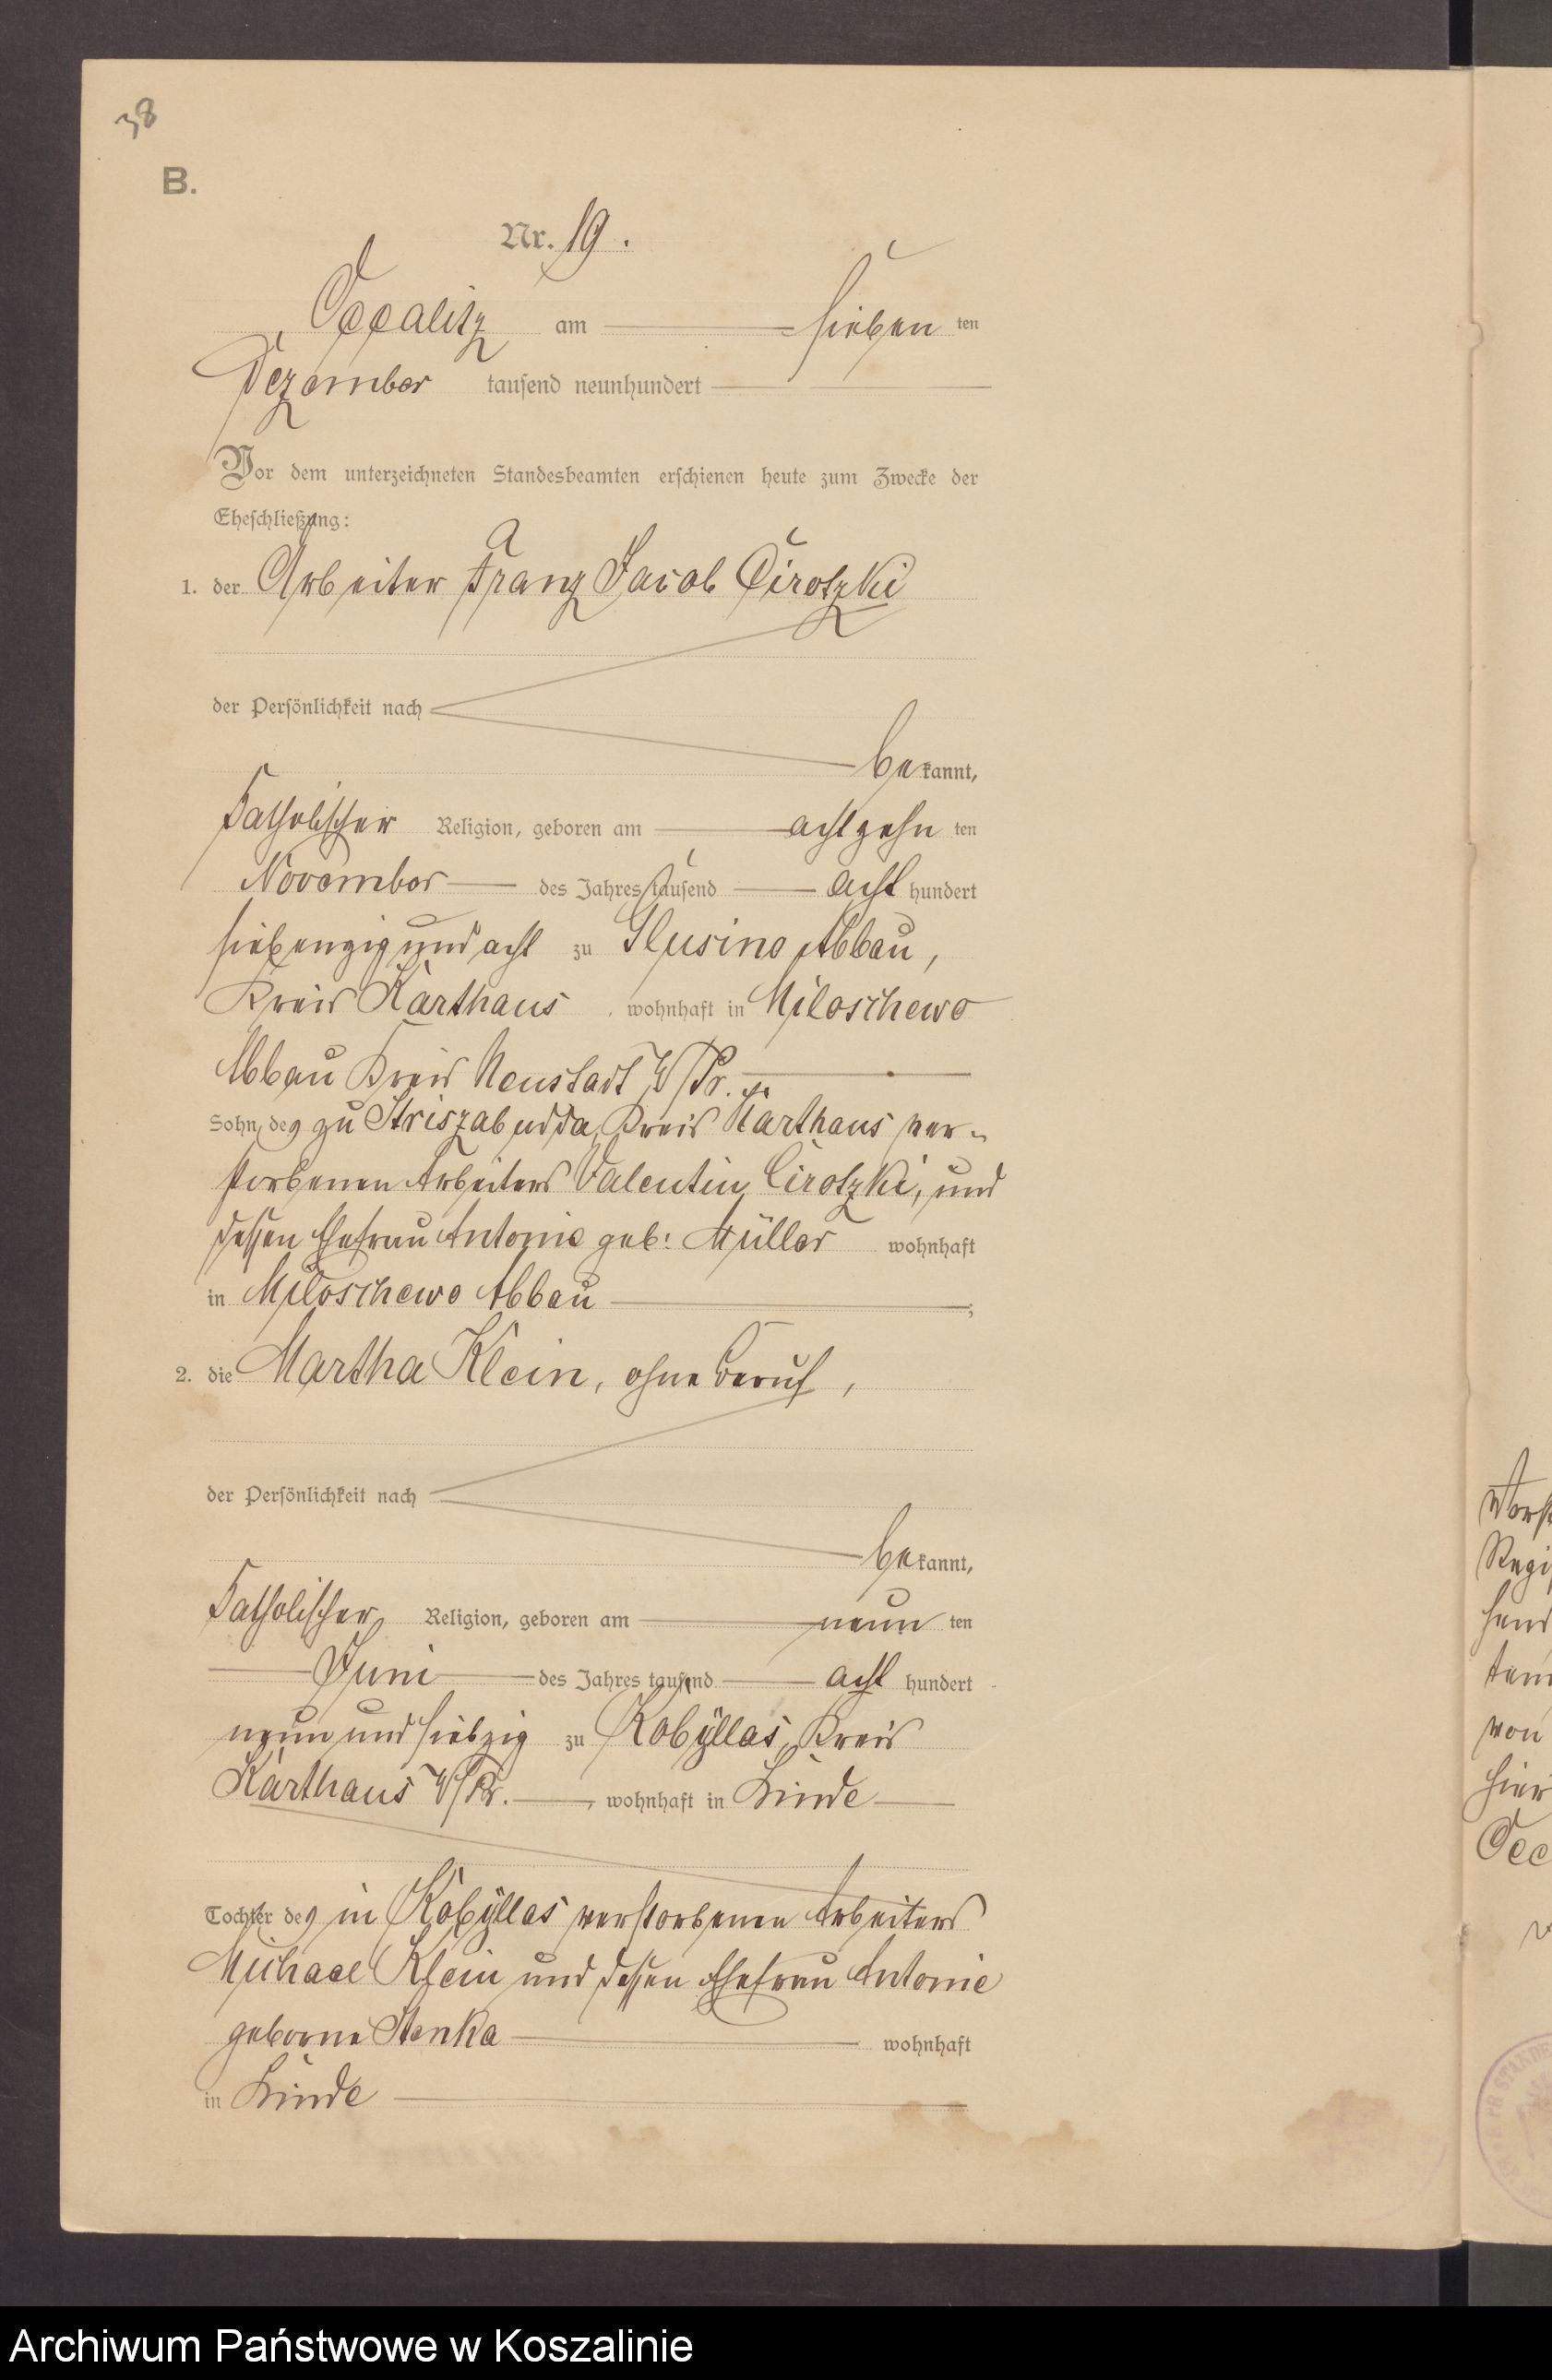 38
B.
Nr. 19.
Occalitz am sieben ten
Dezember tausend neunhundert
Vor dem unterzeichneten Standesbeamten erschienen heute zum Zwecke der
Eheschließung:
1. der Arbeiter Franz Jacob Cirotzki
der Persönlichkeit nach
bekannt,
Katholischer Religion, geboren am achtzehn ten
November des Jahres tausend acht hundert
siebenzig und acht zu Glusino Abbau,
Kreis Karthaus, wohnhaft in Miloschewo
Abbau Kreis Neustadt W/Pr.
Sohn des zu Striszabudda, Kreis Karthaus ver-
storbenen Arbeiters Valentin Cirotzki, und
dessen Ehefrau Antonie geb: Müller wohnhaft
in Miloschewo Abbau ;
2. die Martha Klein, ohne Beruf,
der Persönlichkeit nach
bekannt,
Katholischer Religion, geboren am neun ten
Juni des Jahres tausend acht hundert
neun und siebzig zu Kobyllas, Kreis
Karthaus W/Pr. , wohnhaft in Linde
Tochter des in Kobyllas verstorbenen Arbeiters
Michael Klein und dessen Ehefrau Antonie
geborne Stenka wohnhaft
in Linde
Archiwum Państwowe w Koszalinie